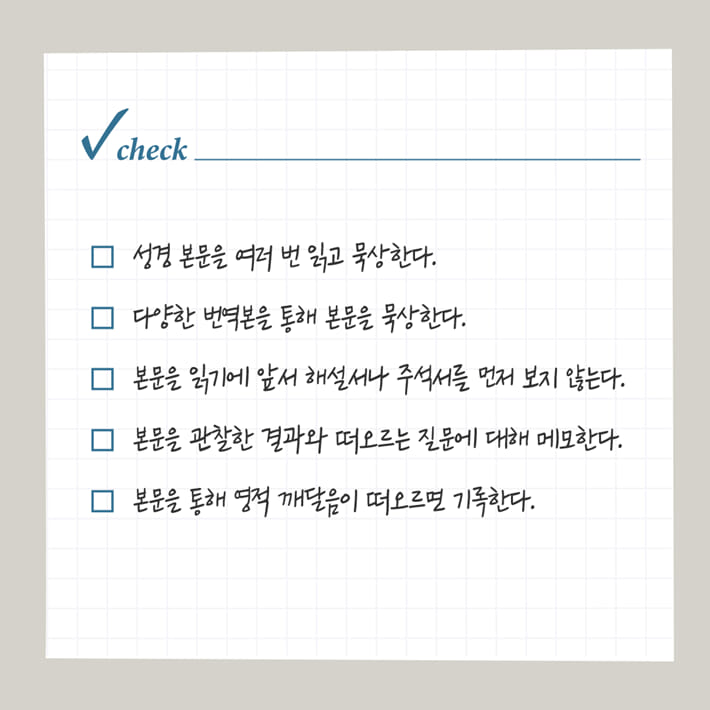 check
성경 본문을 여러 번 읽고 묵상한다.
다양한 번역본을 통해 본문을 묵상한다.
본문을 읽기에 앞서 해설서나 주석서를 먼저 보지 않는다.
본문을 관찰한 결과와 떠오르는 질문에 대해 메모한다.
본문을 통해 영적 깨달음이 떠오르면 기록한다.